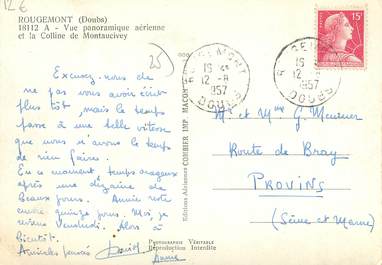 12 €
ROUGEMONT (Doubs)
18112 A - Vue panoramique aérienne
et la Colline de Montaucivey
25
Excusez-nous de
ne pas vous avoir écrit
plus tôt, mais le temps
passe à une telle vitesse
que nous n'avons le temps
de rien faire.
En ce moment, temps orageux
après une dizaine de
beaux jours. Annie reste
encore quinze jours. Moi je
reviens Vendredi. Alors à
bientôt.
Amicales pensées
Annie
Editions Aériennes COMBIER IMP. MACON
PHOTOGRAPHIE VÉRITABLE
Reproduction Interdite
ROUGEMONT
15
12 -8
1957
DOUBS
15F
ROUGEMONT
15
12
1957
DOUBS
Mr et Mme G. Meunier
Route de Bray
PROVINS
(Seine et Marne)